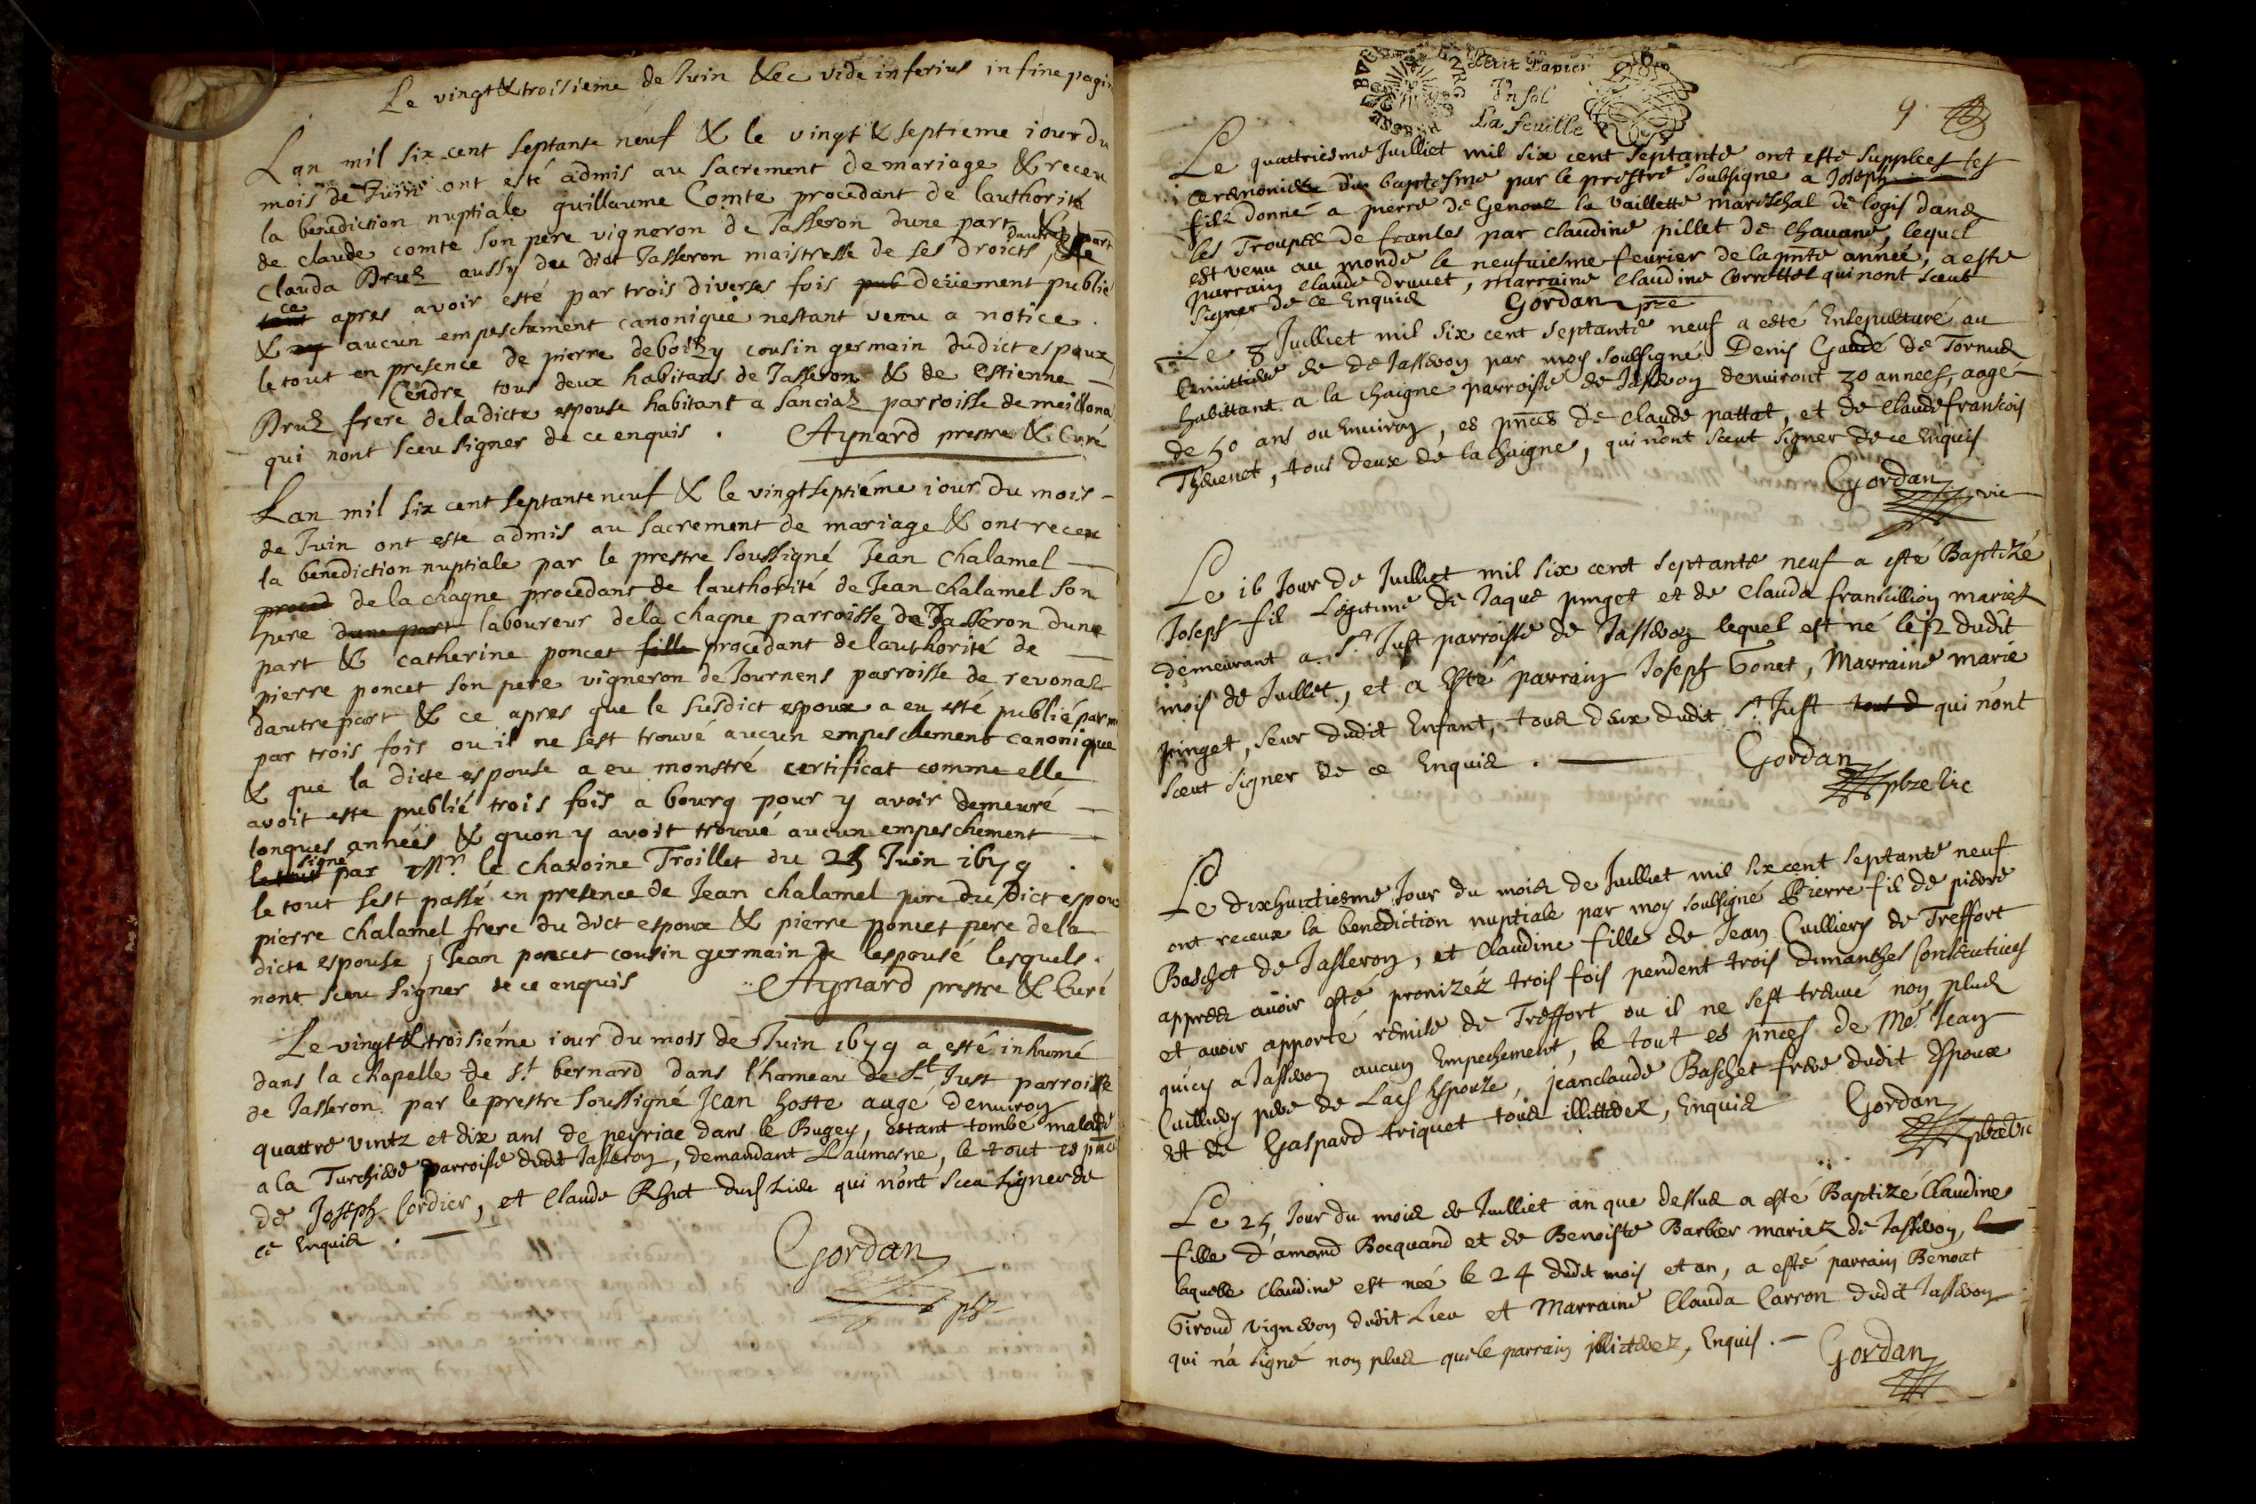 Le vingt & troisieme de Juin &ec vide inferius in fine pagi
Lan mil six cent septante neuf & le vingt & septieme iour du
mois de Juin ont esté admis au sacrement de mariage & receu
la benediction nuptiale guillaume Comte procedant de lauthorité
de claude comte son pere vigneron de Jasseron dune part &
Clauda Druz aussy du dict Jasseron maistresse de ses droicts, dautre part
ce apres avoir esté par trois diverses fois pub deüement publié
& aucun empeschement canonique nestant venu a notice.
le tout en presence de pierre deboissy cousin germain dudict espoux
Cendre tous deux habitans de Jasseron & de Estienne
Druz frere de la dicte espouse habitant a Sanciaz parroisse de meillona
qui nont sceu signer de ce enquis. Aynard prestre & Curé
Lan mil six cent septante neuf & le vingtseptiéme iour du mois
de Juin ont este admis au sacrement de mariage & ont receu
la benediction nuptiale par le prestre soussigné Jean Chalamel
proced de la chagne procedant de lauthorité de Jean chalamel son
pere dune part laboureur de la chagne parroisse de Jasseron dune
part & catherine poncet fille procedant de lauthorité de
pierre poncet son pere vigneron de Journens parroisse de revonas
dautre part & ce apres que le susdict espoux a eu esté publié par m
par trois fois ou il ne sest trouvé aucun empeschement canonique
& que la dicte espouse a eu monstré certificat comme elle
avoit este publié trois fois a bourg pour y avoir demeuré
longues années & quon y avoit trouvé aucun empeschement
signé par Mr. le chanoine Troillet du 25 Juin 1679
le tout sest passé en presence de Jean chalamel pere du dict espou
pierre chalamel frere du dict espoux & pierre poncet pere de la
dicte espouse, Jean poncet cousin germain de lespouse lesquels
nont sceu signer de ce enquis Aynard prestre & Curé
Le vingt & troisiéme iour du mois de Juin 1679 a esté inhumé
dans la chapelle de St bernard dans l'hameau de St Just parroisse
de Jasseron par le prestre soussigné Jean hoste augé denuiron
quattre vintz et dix ans de peyriae dans le Bugey, estant tombé malade
a la Turchiere parroisse dudit Jasseron, demandant Laumosne, le tout es pnce
de Joseph Cordier, et Claude Rhut dud Lieu qui n'ont sceu signer de
ce Enquis.
Gordan
pbr
Petit Papier
Vn sol
La feuille
9
Le quattriesme Juilliet mil six cent septante ont esté supplees les
ceremonies du baptesme par le prestre soubsigne a Joseph
filz donné a pierre de Genoux la vaillette mareschal de logis dans
les Troupes de frances par claudine pillet de Chauane, lequel
est venu au monde le neufuiesme feurier de la pnte année, a esté
parrain Claude druuet, marraine Claudine Correttet qui nont sceut
signer de ce Enquis Gordan pre
Le 8 Juilliet mil six cent septante neuf a esté Ensepulturé au
Cemittiere de Jasseron par moy soubsigné Denis Gaudé de Tornus
habittant a la Chaigne parroisse de Jasseron denuiront 30 annees, aagé
de 50 ans ou Enuiron, es pnces de Claude pattat, et de Claude francois
Theuenet, tous deux de la Chaigne, qui n'ont sceut signer de ce Enquis
Gordan vic
Le 16 Jour de Juilliet mil six cent septante neuf a esté Baptizé
Joseph fil Legitime de Jaque pinget et de Clauda francillion mariez
demeurant a St Just parroisse de Jasseron lequel est né le 12 dudit
mois de Juillet, et a Esté parrain Joseph Gonet, Marraine marie
pinget, seur dudit Enfant, tous deux dudit St Just tous d qui n'ont
sceut signer de ce Enquis.
Gordan
pbre vic
Le dixhuictiesme Jour du mois de Juilliet mil six cent septante neuf
ont receux la benediction nuptiale par moy soubsigné Pierre fil de pierre
Baschet de Jasseron, et Claudine fille de Jean Cuilliery de Treffort
appres auoir esté pronizéz trois fois pendent trois dimanches Consécutiues
et auoir apporté remise de Treffort ou il ne sest treuué non plus
qu'icy a Jasseron aucun Empechement, le tout es pnces de Me Jean
Cuilliery pere de Lad Espouze, jeanclaude Baschet frere dudit Espoux
et de Gaspard triquet tous illitterez, Enquis Gordan
pbre vic
Le 25 Jour du mois de Juilliet an que dessus a esté Baptizé Claudine
fille d'amand Bocquand et de Benoiste Barbier mariez de Jasseron,
laquelle Claudine est née le 24 dudit mois et an, a esté parrain Benoict
Giroud vigneron dudit Lieu et Marraine Clauda Carron dudit Jasseron
qui n'a signé non plus que le parrain illiterez, Enquis.
Gordan